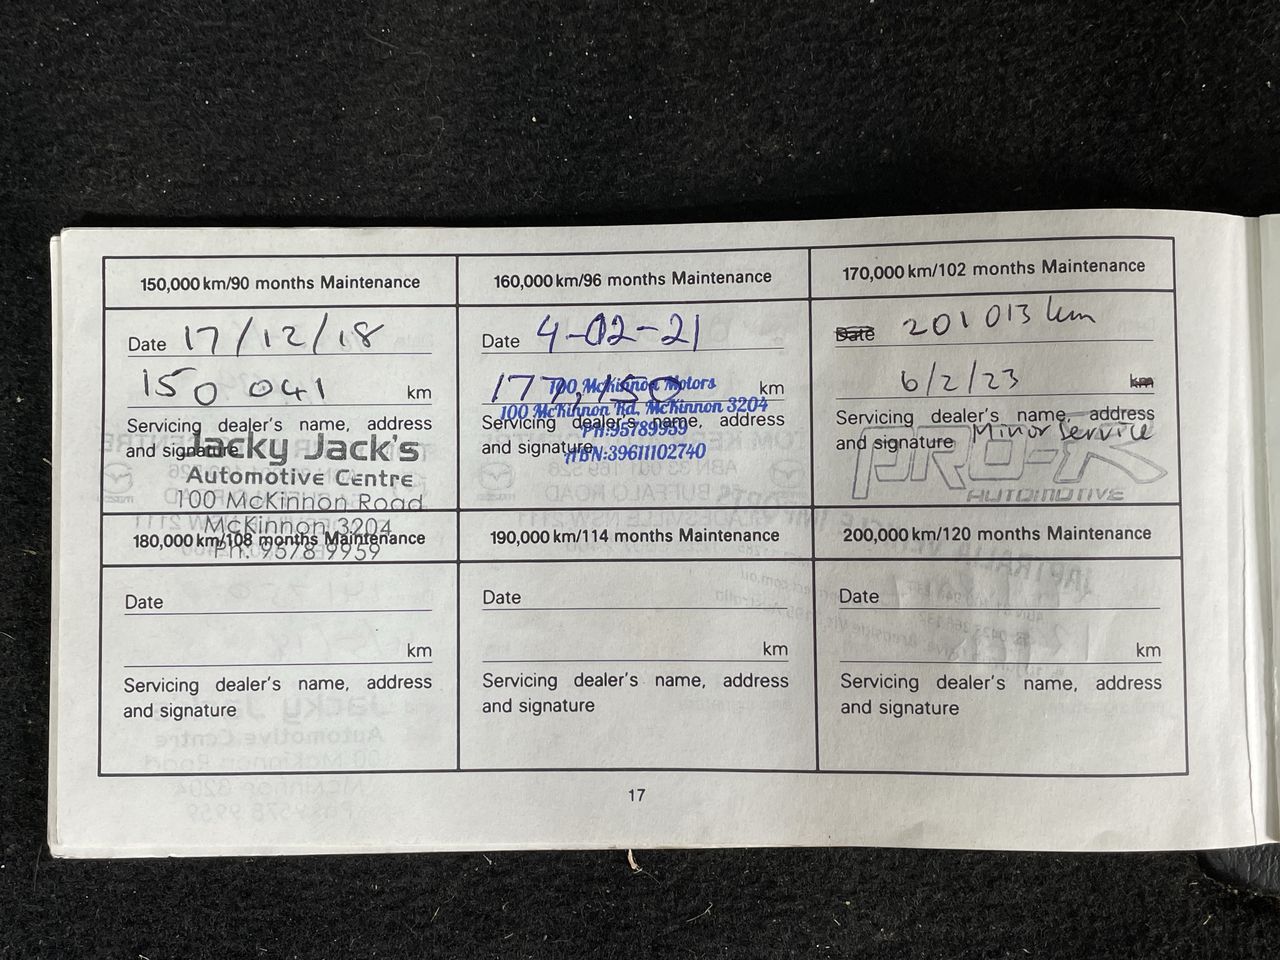 150,000 km/90 months Maintenance
Date 17/12/18
150 041 km
Servicing dealer's name, address
and signature
Jacky Jack's
Automotive Centre
100 McKinnon Road
McKinnon 3204
Ph. 9578 9959
160,000 km/96 months Maintenance
Date 4-02-21
177,150 km
Servicing dealer's name, address
and signature
100 McKinnon Motors
100 McKinnon Rd, McKinnon 3204
PH:95789959
ABN:39611102740
170,000 km/102 months Maintenance
Date 201 013 km
6/2/23 km
Servicing dealer's name, address
and signature Minor Service
PRO-K
AUTOMOTIVE
180,000 km/108 months Maintenance
Date
km
Servicing dealer's name, address
and signature
190,000 km/114 months Maintenance
Date
km
Servicing dealer's name, address
and signature
200,000 km/120 months Maintenance
Date
km
Servicing dealer's name, address
and signature
17